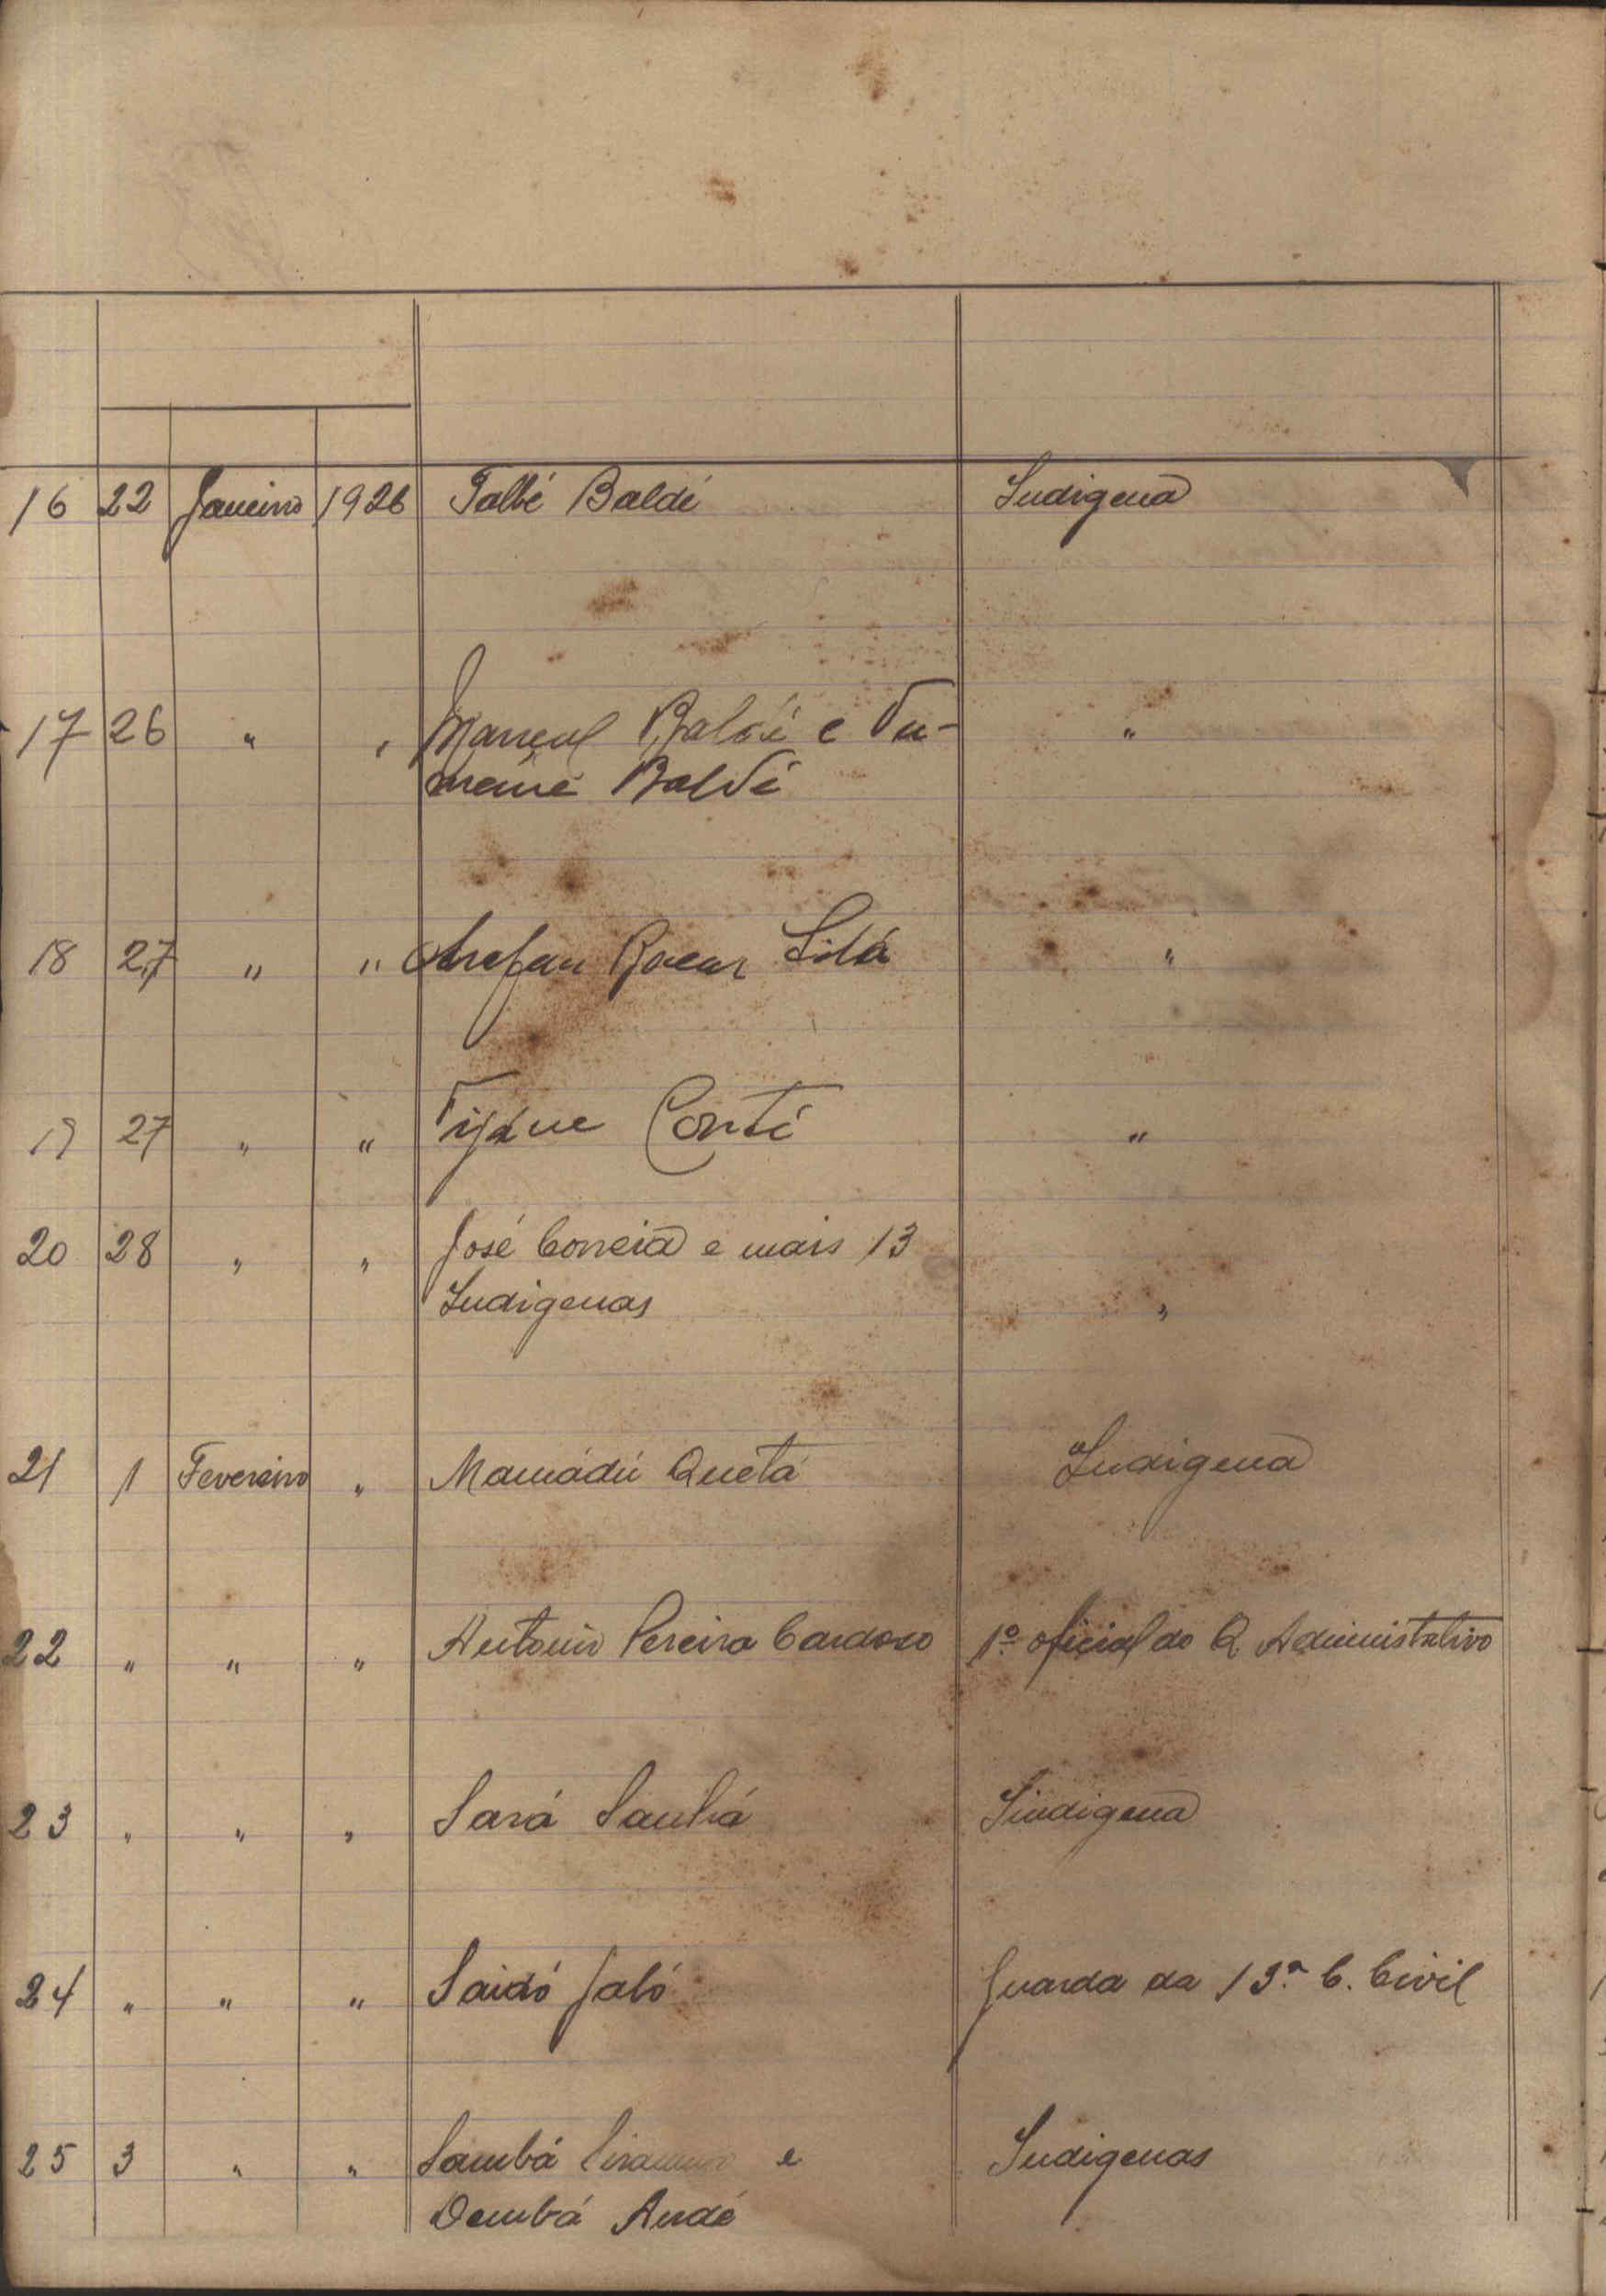 16 22 Janeiro 1926 Talbé Baldé Indigena
17 26 " " Manuel Baldé e Tu-
Baldé "
18 27 " "
19 27 " " Tijane Conté "
20 28 " " José Correia e mais 13
Indigenas "
21 1 Fevereiro " Mamádú Quetá Indigena
22 " " " Antonio Pereira Cardoso 1º oficial do Q Administrativo
23 " " " Sará Indigena
24 " " " Saidó Jaló Guarda da 13.ª C. Civil
25 3 " " Sambá e Indigenas
Dembá Andé